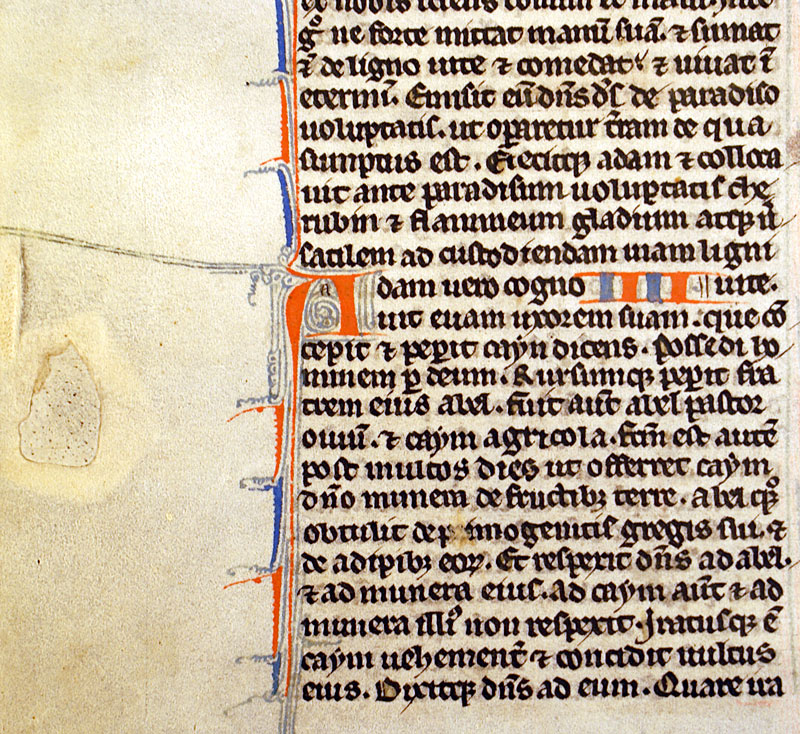 ex nobis sciens bonum et malum. nunc
gͦ ne forte mittat manū suā. ⁊ sumat
⁊ de ligno uite ⁊ comedat ⁊ uiuat ī
eternū. Emisit eū dn̄s ds̄ de paradiso
uoluptatis. ut oꝑaretur t̄ram de qua
sumptus est. Eiecitqꝫ adam ⁊ colloca
uit ante paradisum uoluptatis che
rubin ⁊ flammeum gladium atqꝫ ū
satilem ad custodiendam uiam ligni
Adam uero cogno IIII uite.
uit euam uxorem suam. que cō
cepit ⁊ peꝑit cayn dicens. Possedi ho
minem ꝑ deum. Rursumqꝫ peꝑit fra
trem eius abel. fuit aut̄ abel pastor
ouiū. ⁊ caym agricola. fc̄m est autē
post multos dies ut offerret caym
dn̄o munera de fructibꝫ terre. abel qͦꝫ
obtulit de pimogenitis gregis sui. ⁊
de adipibꝫ eoꝝ. Et respexit dn̄s ad abel.
⁊ ad munera eius. ad caym aut̄ ⁊ ad
munera illiꝰ non respexit. Iratusqꝫ ē
caym uehement̄ ⁊ concidit uultus
eius. Dixitqꝫ dn̄s ad eum. Quare ira